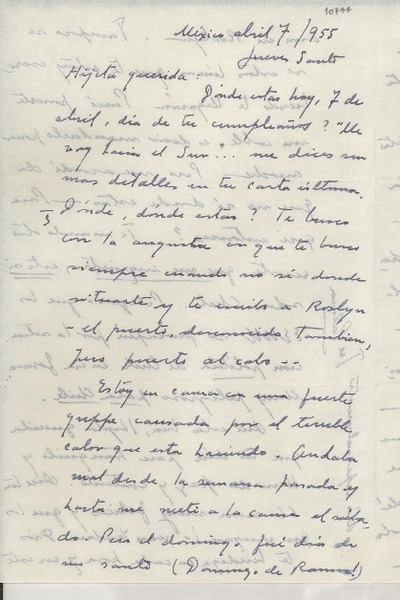 10744
México abril 7/955
Jueves Santo
Hijita querida:
Dónde estas hoy, 7 de
abril, día de tu cumpleaños? "Me
voy hacia el Sur"... me dices sin
mas detalles en tu carta última.
Dónde, donde estas? Te busco
con la angustia en que te busco
siempre cuando no sé donde
situarte, y te escribo a Roslyn
el puerto, desconocido tambien,
pero puerto al cabo --
Estoy en cama con una fuerte
grippe, causada por el terrible
calor que esta haciendo. Andaba
mal desde la semana pasada y
hasta me metí a la cama el sába
do. Pero el domingo, fué día de
mi santo (Domingo de Ramos!)